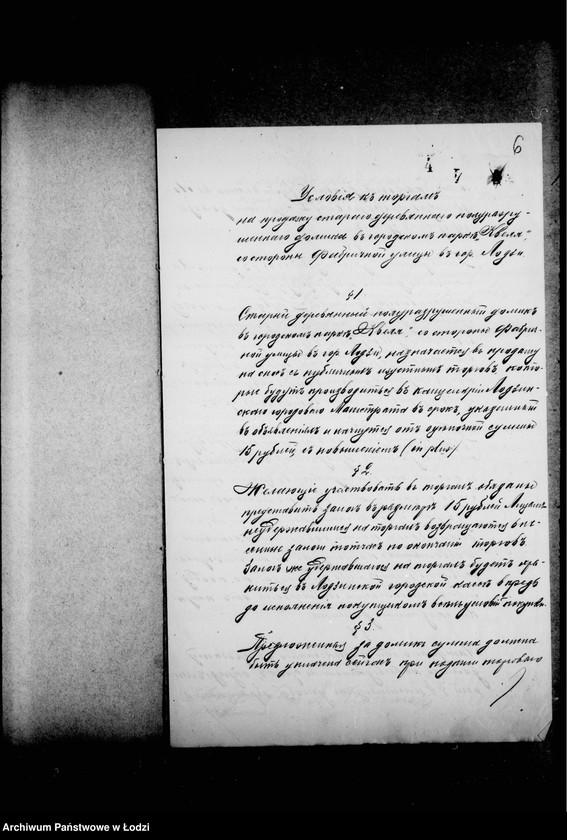 6
4
Условія къ торгамъ
на продажу стараго деревяннаго полуразру-
шеннаго домика въ городскомъ паркѣ „Квеля",
со стороны Фабричной улицы въ гор. Лодзи.
§ 1
Старый деревянный полуразрушенный домикъ
въ городскомъ паркѣ „Квеля", со стороны Фабрич-
ной улицы въ гор. Лодзи, назначается въ продажу
на сносъ съ публичныхъ изустныхъ торговъ, кото-
рые будутъ производиться въ канцеляріи Лодзин-
скаго городоваго Магистрата въ срокъ, указанный
въ объявленіяхъ и начнутся отъ оцѣночной суммы
15 рублей съ повышеніемъ (in plus)
§ 2.
Желающіе участвовать въ торгахъ обязаны
представить залогъ въ размѣрѣ 15 рублей. Лицамъ
неудержавшимся на торгахъ возвращаются вне-
сенные залоги тотчасъ по окончаніи торговъ.
Залогъ же удержавшагося на торгахъ будетъ хра-
ниться въ Лодзинской городской кассѣ впредь
до исполненія покупщикомъ всѣхъ условій покупки.
§ 3.
Предложенная за домикъ сумма должна
быть уплачена сейчасъ при подписи торговаго
Archiwum Państwowe w Łodzi